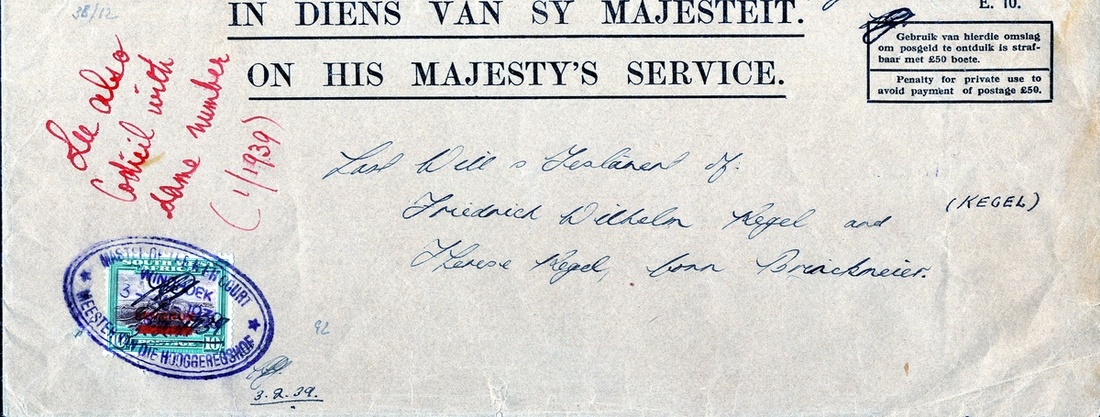 38/12
IN DIENS VAN SY MAJESTEIT.
ON HIS MAJESTY'S SERVICE.
E. 10.
Gebruik van hierdie omslag
om posgeld te ontduik is straf-
baar met £50 boete.
Penalty for private use to
avoid payment of postage £50.
See also
Codicil with
same number
(1/1939)
Last Will & Testament of:
Friedrich Wilhelm Kegel and
(KEGEL)
Therese Kegel, born Brinckmeier.
MASTER OF THE COURT
SOUTH
AFRICA
WINDHOEK
MEESTER VAN DIE HOOGGEREGSHOF
92
3.2.39.